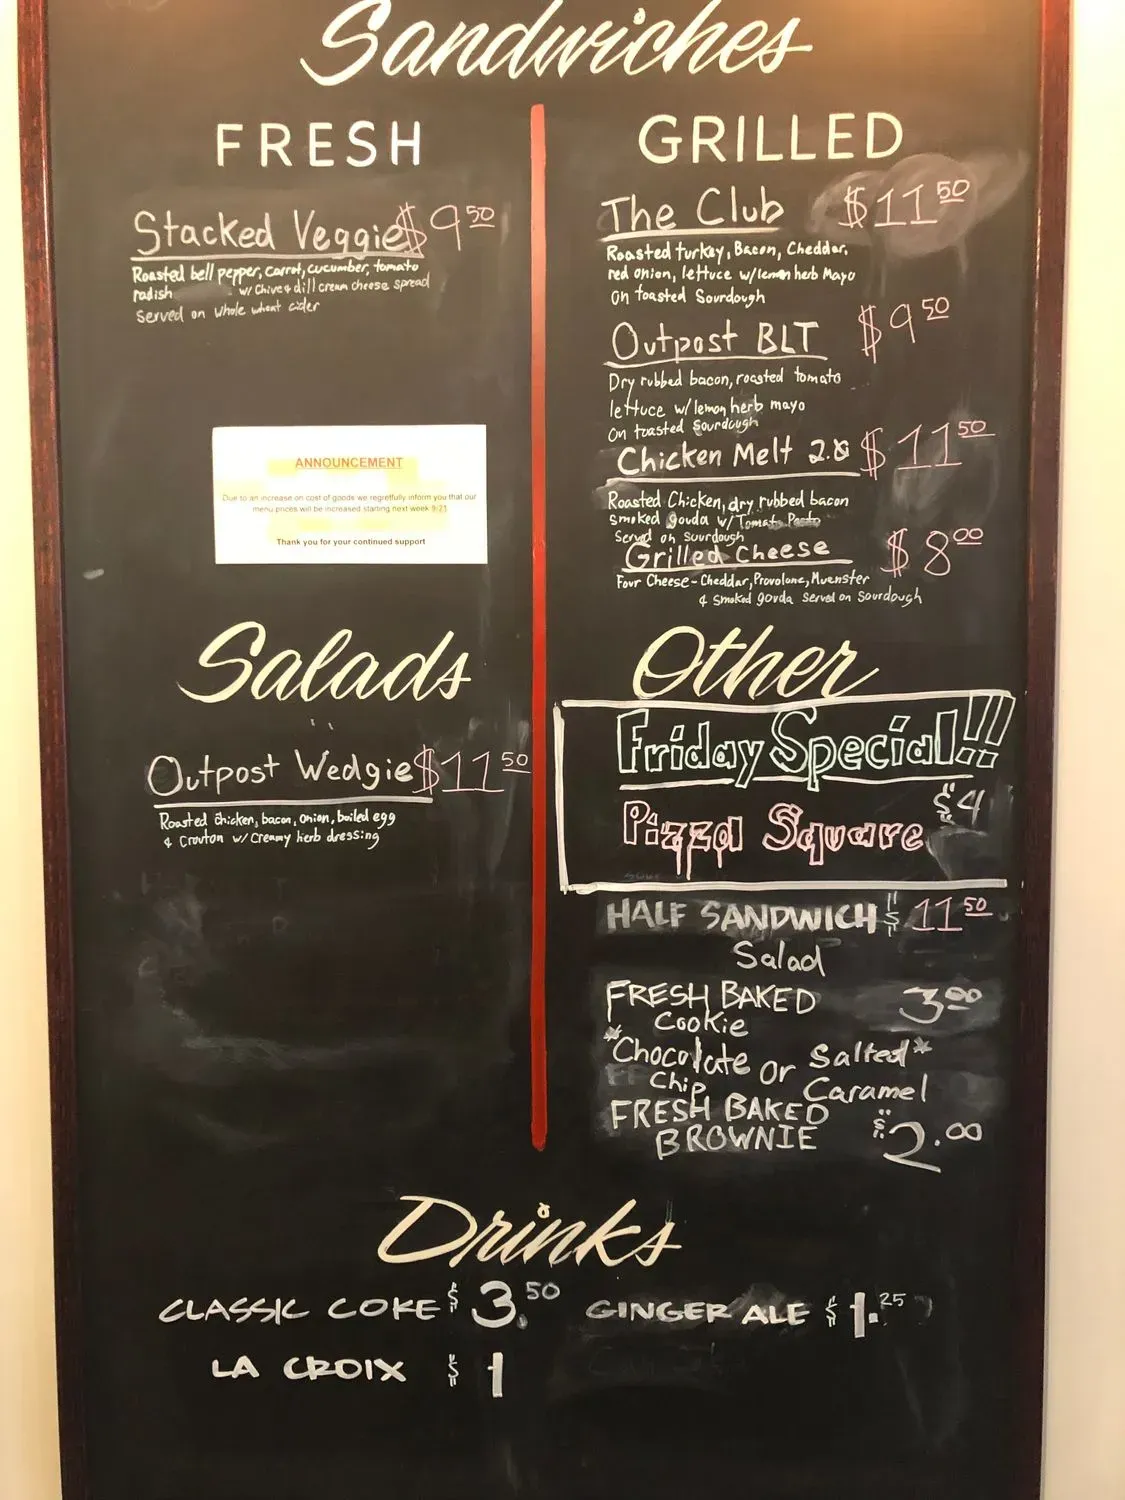 Sandwiches
FRESH
Stacked Veggie $9 50
Roasted bell pepper, carrot, cucumber, tomato
radish w/ Chive & dill cream cheese spread
Served on whole wheat cider
ANNOUNCEMENT
Due to an increase on cost of goods we regretfully inform you that our
menu prices will be increased starting next week 9/21
Thank you for your continued support
GRILLED
The Club $11 50
Roasted turkey, Bacon, Cheddar,
red onion, lettuce w/lemon herb Mayo
On toasted Sourdough
Outpost BLT $9 50
Dry rubbed bacon, roasted tomato
lettuce w/ lemon herb mayo
On toasted Sourdough
Chicken Melt 2.0 $11 50
Roasted Chicken, dry rubbed bacon
smoked gouda w/ Tomato Pesto
Served on sourdough
Grilled Cheese $8 00
Four Cheese - Cheddar, Provolone, Muenster
& smoked gouda served on Sourdough
Salads
Outpost Wedgie $11 50
Roasted chicken, bacon, onion, boiled egg
& Crouton w/ Creamy herb dressing
Other
Friday Special!!!
$4
Pizza Square
HALF SANDWICH $11 50
Salad
FRESH BAKED 3 00
Cookie
*Chocolate or Salted*
Chip Caramel
FRESH BAKED
BROWNIE $2.00
Drinks
CLASSIC COKE $3.50 GINGER ALE $1.25
LA CROIX $1